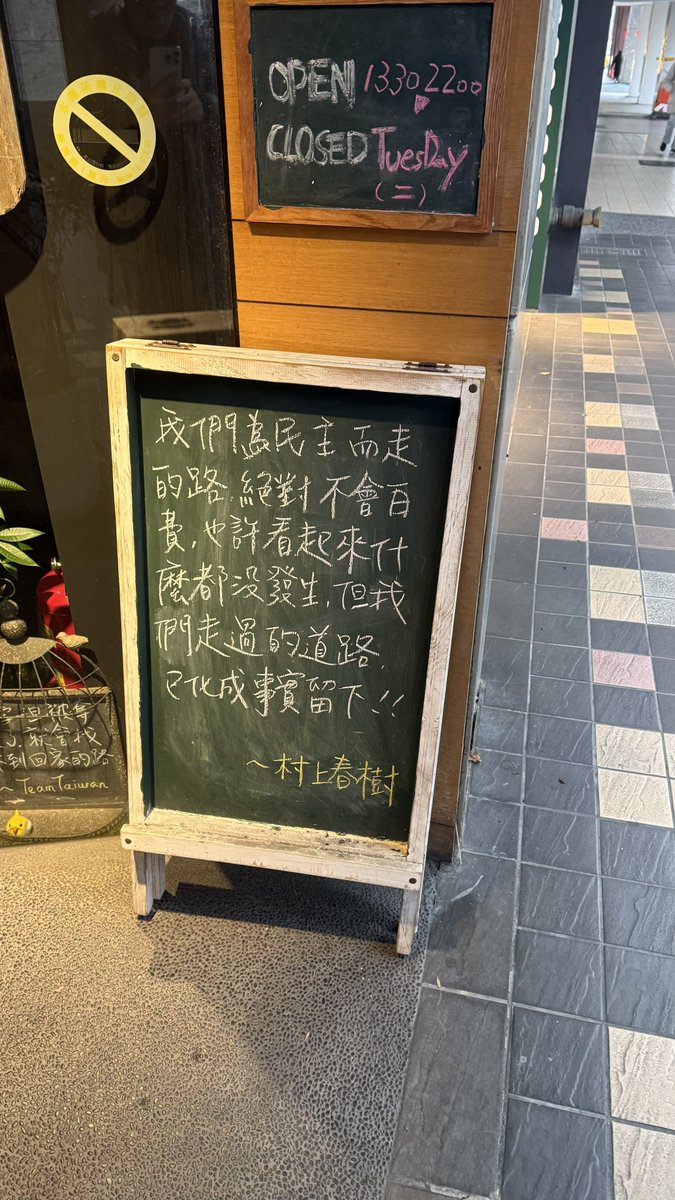 OPEN 1330▸2200
CLOSED TuesDay
(二)
我們為民主而走
的路.絕對不會百
費,也許看起來什
麼都没發生,但我
們走過的道路.
已化成事實留下!!
~村上春樹
到回家的路
~TeamTaiwan